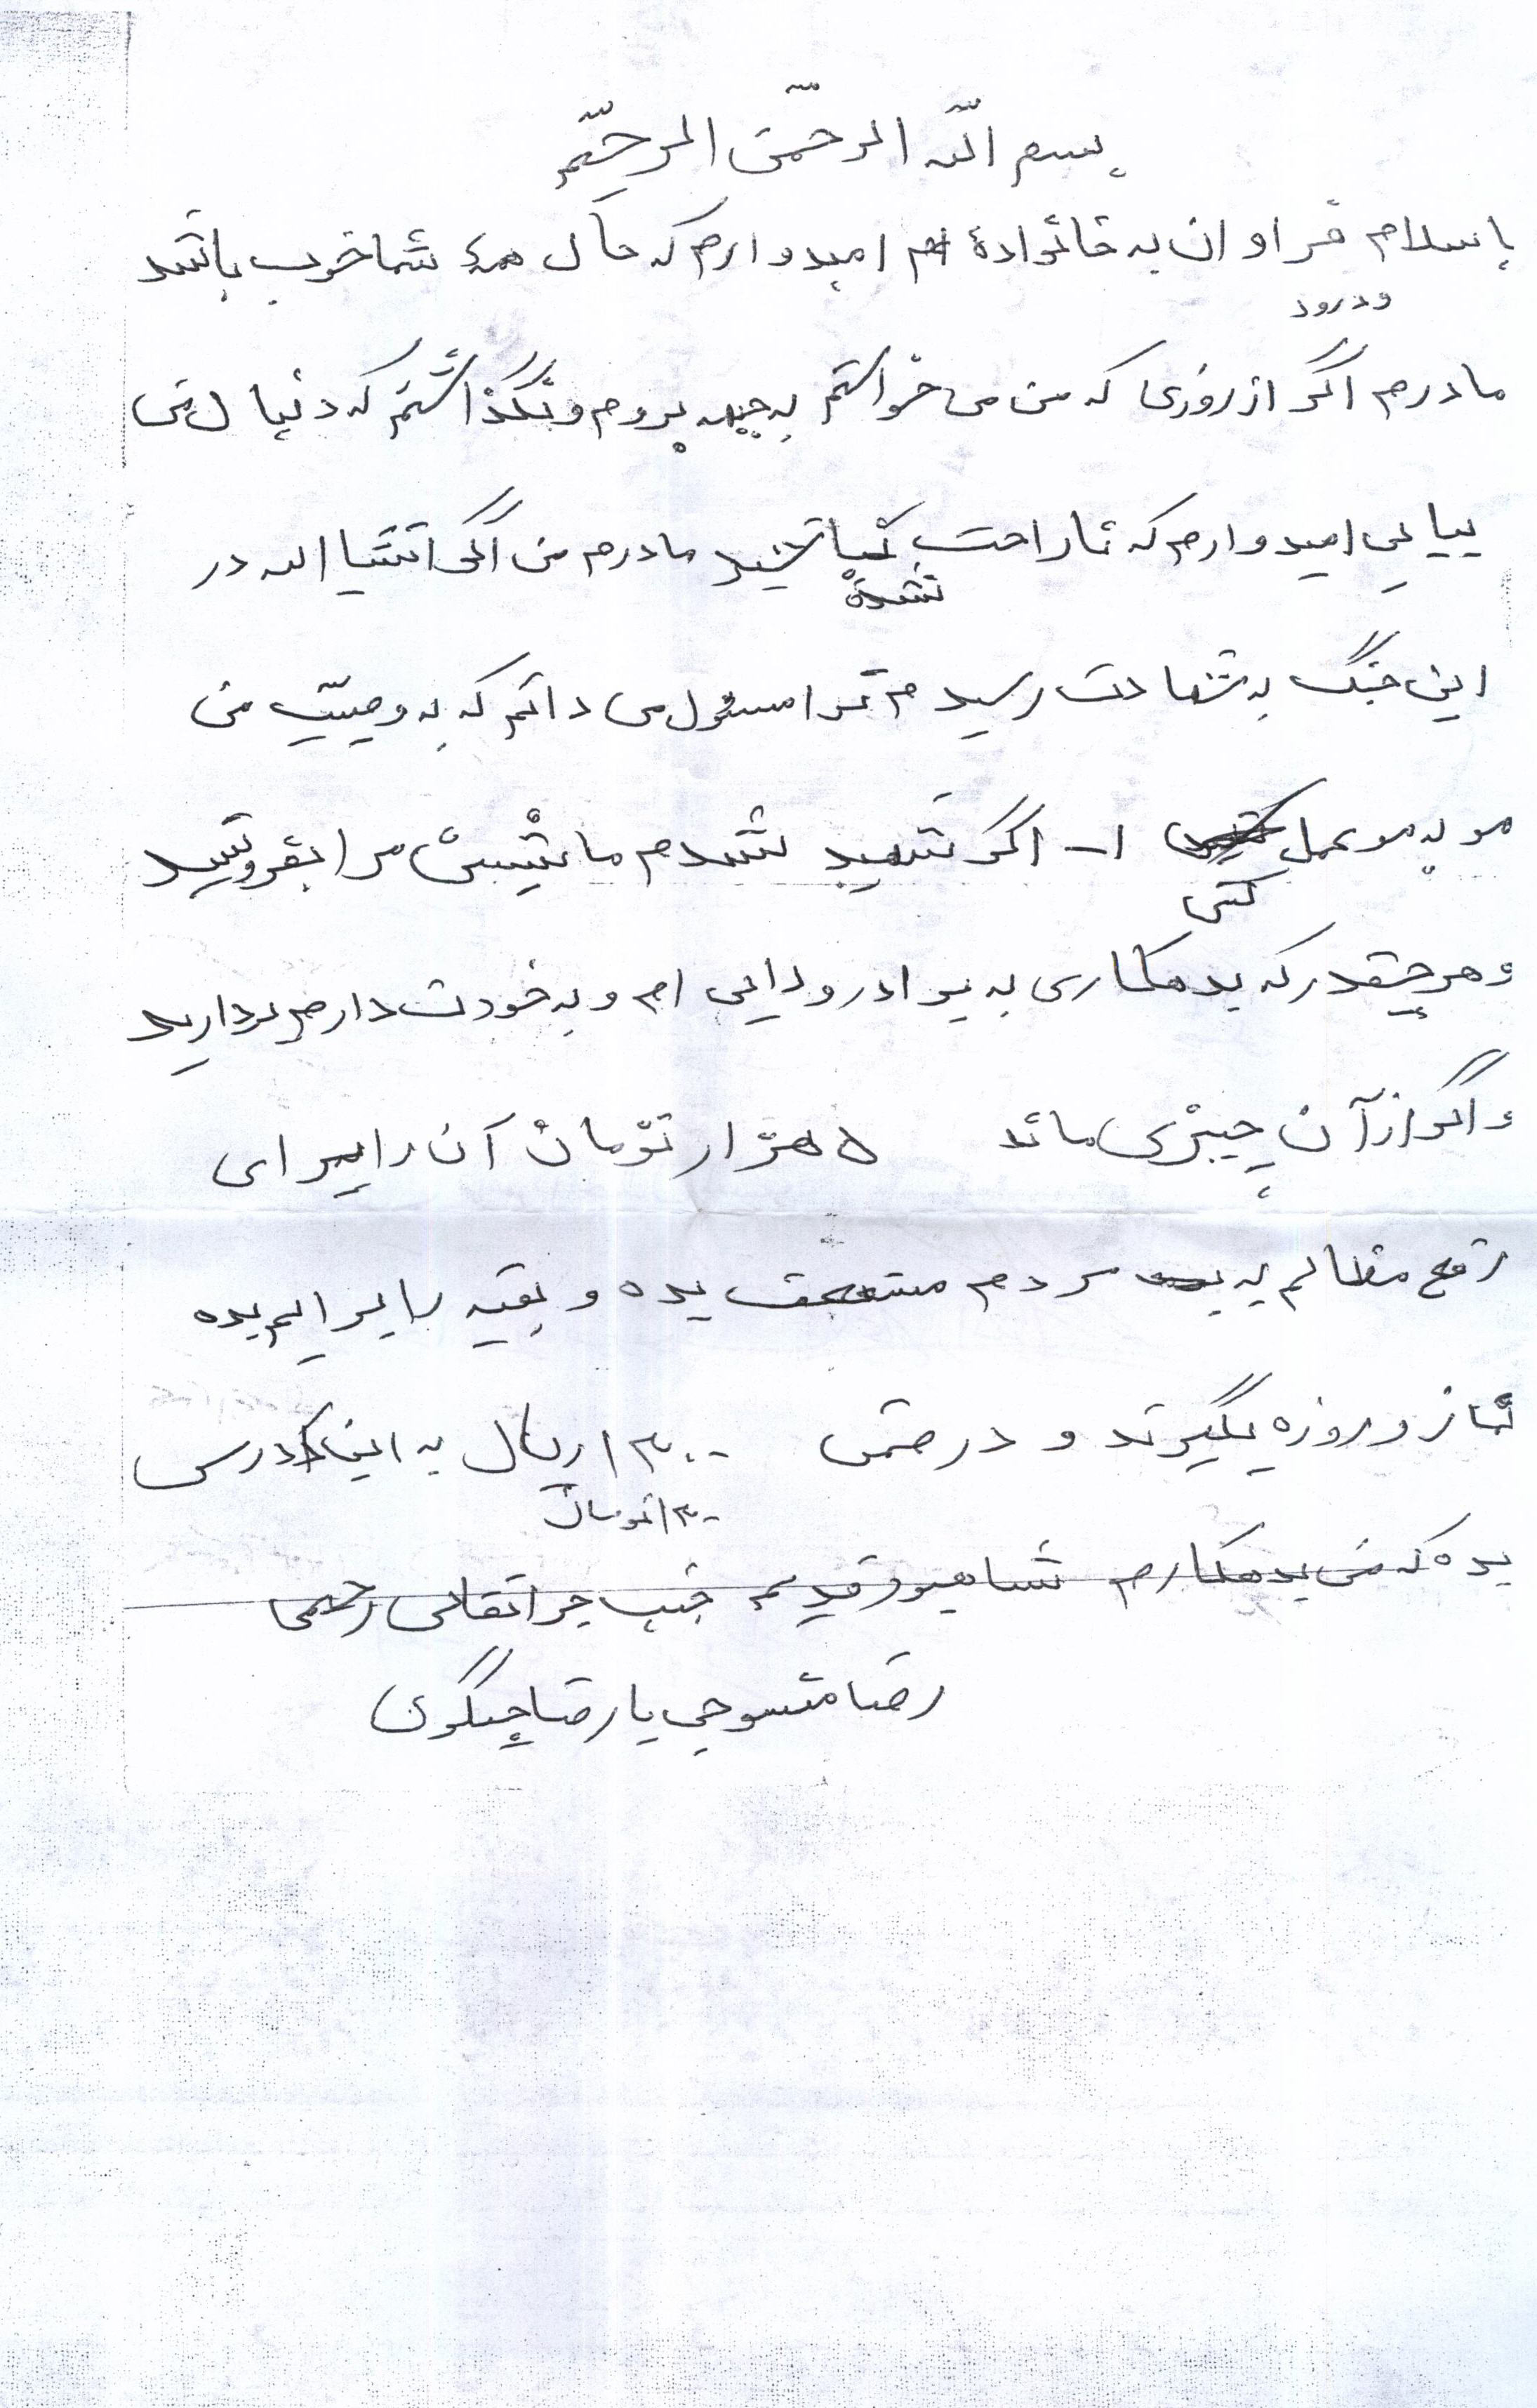 بسم اللّه الرحمّن الرحیّم
باسلام فراوان به خانوادهٔ ام امیدوارم که حال همهٔ شما خوب باشد
ودرود
مادرم اگر از روزی که من می خواستم به جبهه بروم و نگذاشتم که دنبال من
بیایی امیدوارم که ناراحت نباشید مادرم من اگر انشیا الله در
نشدة
این جنگ به شهادت رسیدم ترا مسئول می دانم که به وصیّت من
مو به مو عمل ۱- اگر شهید شدم ماشینش مرا بفروشید
کنی
و هر چقدر که بدهکاری به برادر و دایی ام و به خودت دارم بردارید
و اگر از آن چیزی ماند ۵ هزار تومان آن را برای
رفع مظالم به مردم مستحق بده و بقیه را برایم بده
نماز و روزه بگیرند و در ضمن ۱۳۰۰ ریال به این ادرس
۱۳۰ تومان
بده که من بدهکارم شاهپور قدیم جنب جراثقالی رحیمی
رضا منسوجی یا رضا چینگری